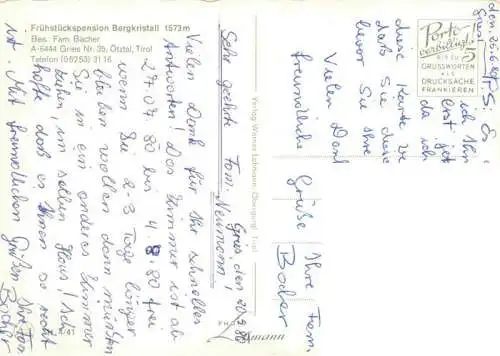 Frühstückspension Bergkristall 1573m
Bes. Fam. Bacher
A-6444 Gries Nr. 35, Ötztal, Tirol
Telefon (05253) 3116
Gries, den 20.2.80
Sehr geehrte Fam. Neumann!
Vielen Dank für Ihr schnelles
Antworten! Das Zimmer ist ab
27.07.80 bis 4.8.80 frei
wenn Sie 2-3 Tage länger
bleiben wollen dann müßten
Sie in ein anderes Zimmer
im selben Haus! Ich
hoffe daß es Ihnen so recht
ist. Mit freundlichen Grüßen Ihre Fam.
Bacher
Verlag Werner Lohmann, Obergurgl, Tirol
PHOTO Lohmann
Porto
verbilligt!
BIS ZU
5
GRUSSWORTEN
ALS
DRUCKSACHE
FRANKIEREN
P.S.
ich Ihn
erst jet
da ich
diese Karte
daß Sie diese
wie Ihre
Vielen Dank
freundliche
Grüße Ihre Fam.
Bacher